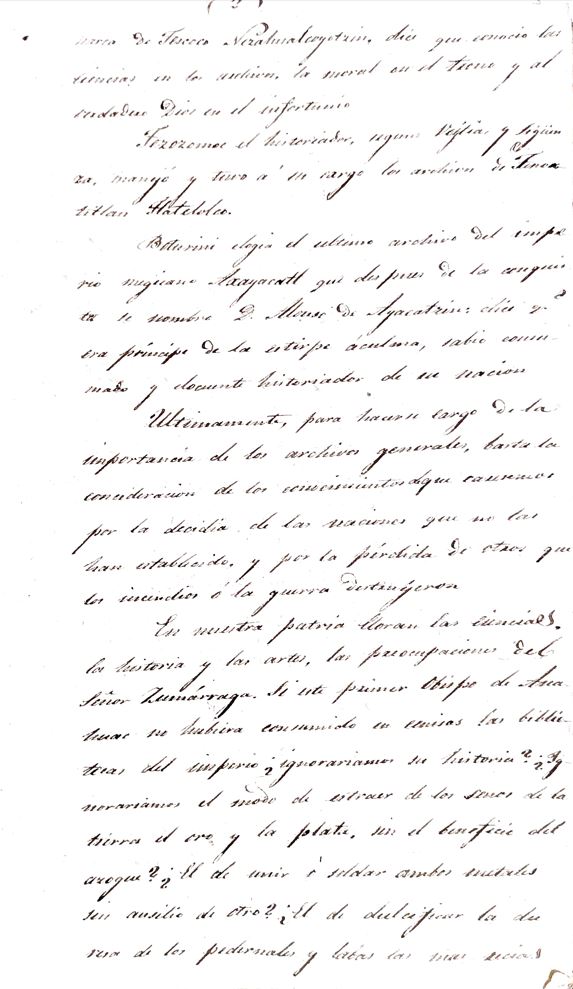 (3)
narca de Tescoco Nezalmalcoyotzin, dice que conocio las
ciencias en los archivos, la moral en el trono y al
verdadero Dios en el infortunio
Tezozomoc el historiador, segun Veytia, y Sigüen
za, manejó y tuvo á su cargo los archivos de Tenox
titlan Tlatelolco.
Boturini elogia el ultimo archivo del impe
rio megicano Axayacatl que despues de la conquis
ta se nombró D. Alonso de Ayacatzin: dice q.e
era príncipe de la estirpe áculma, sabio consu-
mado y elocuente historiador de su nacion
Ultimamente, para hacerse cargo de la
importancia de los archivos generales, basta la
consideracion de los conocimientos que caremos
por la decidia de las naciones que no los
han establecido, y por la pérdida de otros que
los incendios ó la guerra destruyeron
En nuestra patria lloran las ciencias,
la historia y las artes, las preocupaciones del
Señor Zumárraga. Si este primer Obispo de Ana
huac no hubiera consumido en cenisas las biblio
tecas del imperio ¿ignorariamos su historia? ¿Yg
norariamos el modo de estraer de los senos de la
tierra el oro y la plata, sin el beneficio del
azogue? ¿El de unir ó soldar ambos metales
sin ausilio de otro? ¿El de dulcificar la du
resa de los pedernales y labas las mas recias